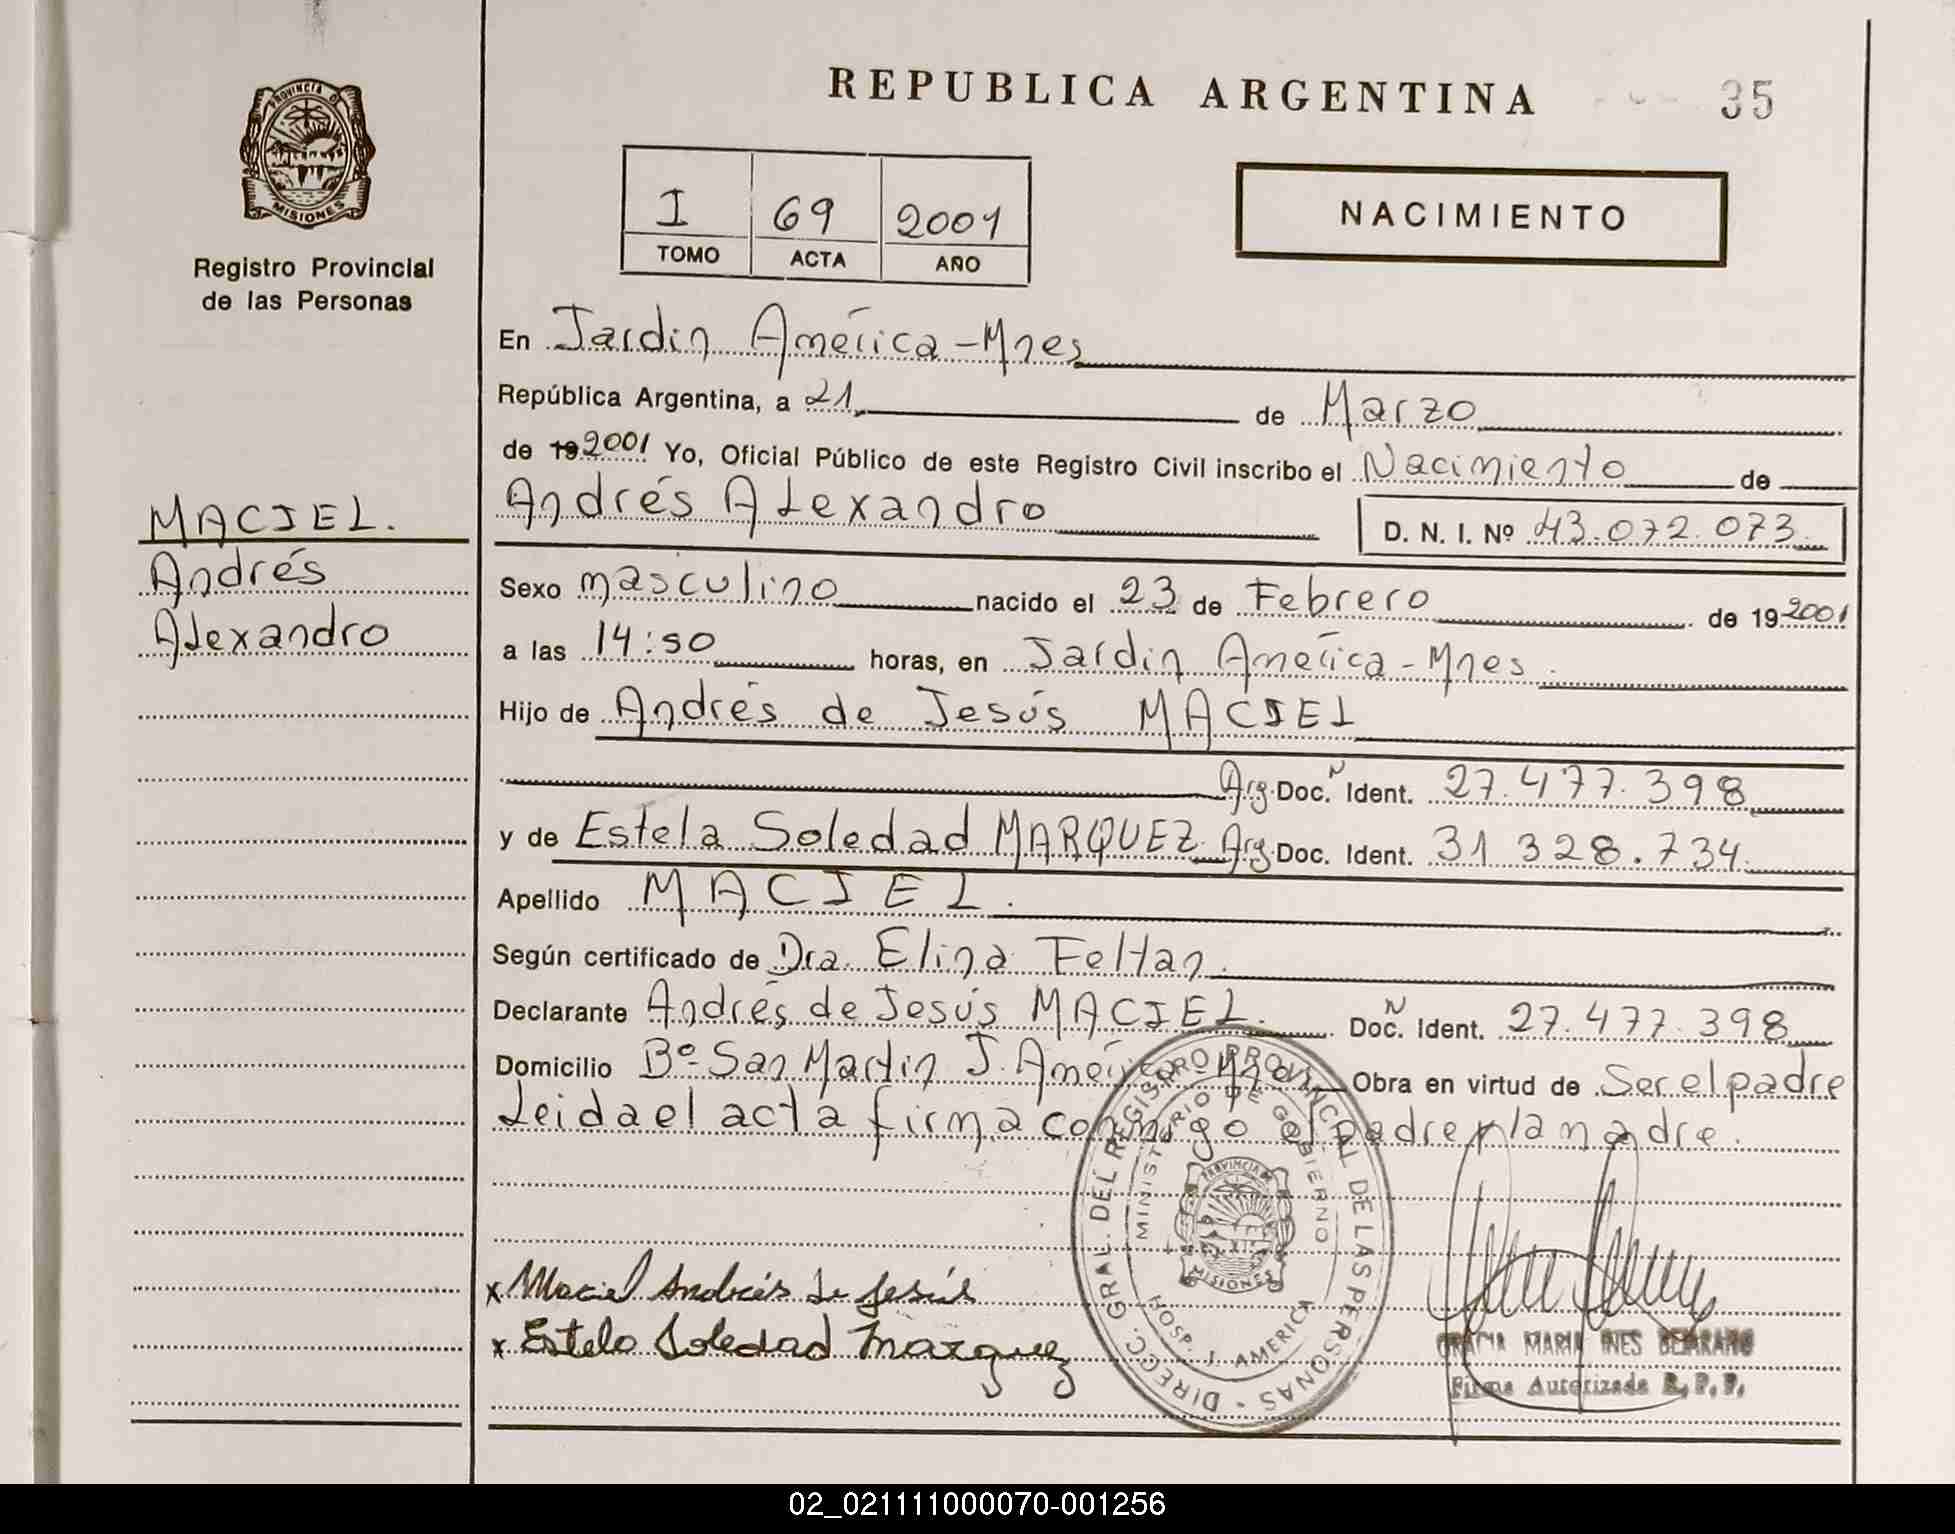 REPUBLICA ARGENTINA
35
PROVINCIA DE
MISIONES
Registro Provincial
de las Personas
I 69 2001
TOMO ACTA AÑO
NACIMIENTO
En Jardín América-Mnes
República Argentina, a 21 de Marzo
de 19 2001 Yo, Oficial Público de este Registro Civil inscribo el Nacimiento de
Andrés Alexandro D. N. I. Nº 43.072.073.
MACIEL.
Andrés
Alexandro
Sexo masculino nacido el 23 de Febrero de 19 2001
a las 14:50 horas, en Jardín América-Mnes.
Hijo de Andrés de Jesús MACIEL
Arg. Doc. N Ident. 27.477.398
y de Estela Soledad MARQUEZ Arg. Doc. Ident. 31 328.734.
Apellido MACIEL.
Según certificado de Dra. Elina Feltan.
Declarante Andrés de Jesús MACIEL. Doc. N Ident. 27.477.398
Domicilio Bº San Martin J. América-Mnes Obra en virtud de Ser el padre
Leida el acta firma conmigo el padre y la madre.
DIRECC. GRAL. DEL REGISTRO PROVINCIAL DE LAS PERSONAS
MINISTERIO DE GOBIERNO
PROVINCIA DE
MISIONES
HOSP. J. AMERICA
x Maciel Andrés de Jesús
x Estela Soledad Marquez
GRACIA MARIA INES BEJARANO
Firma Autorizada R.P.P.
02_021111000070-001256